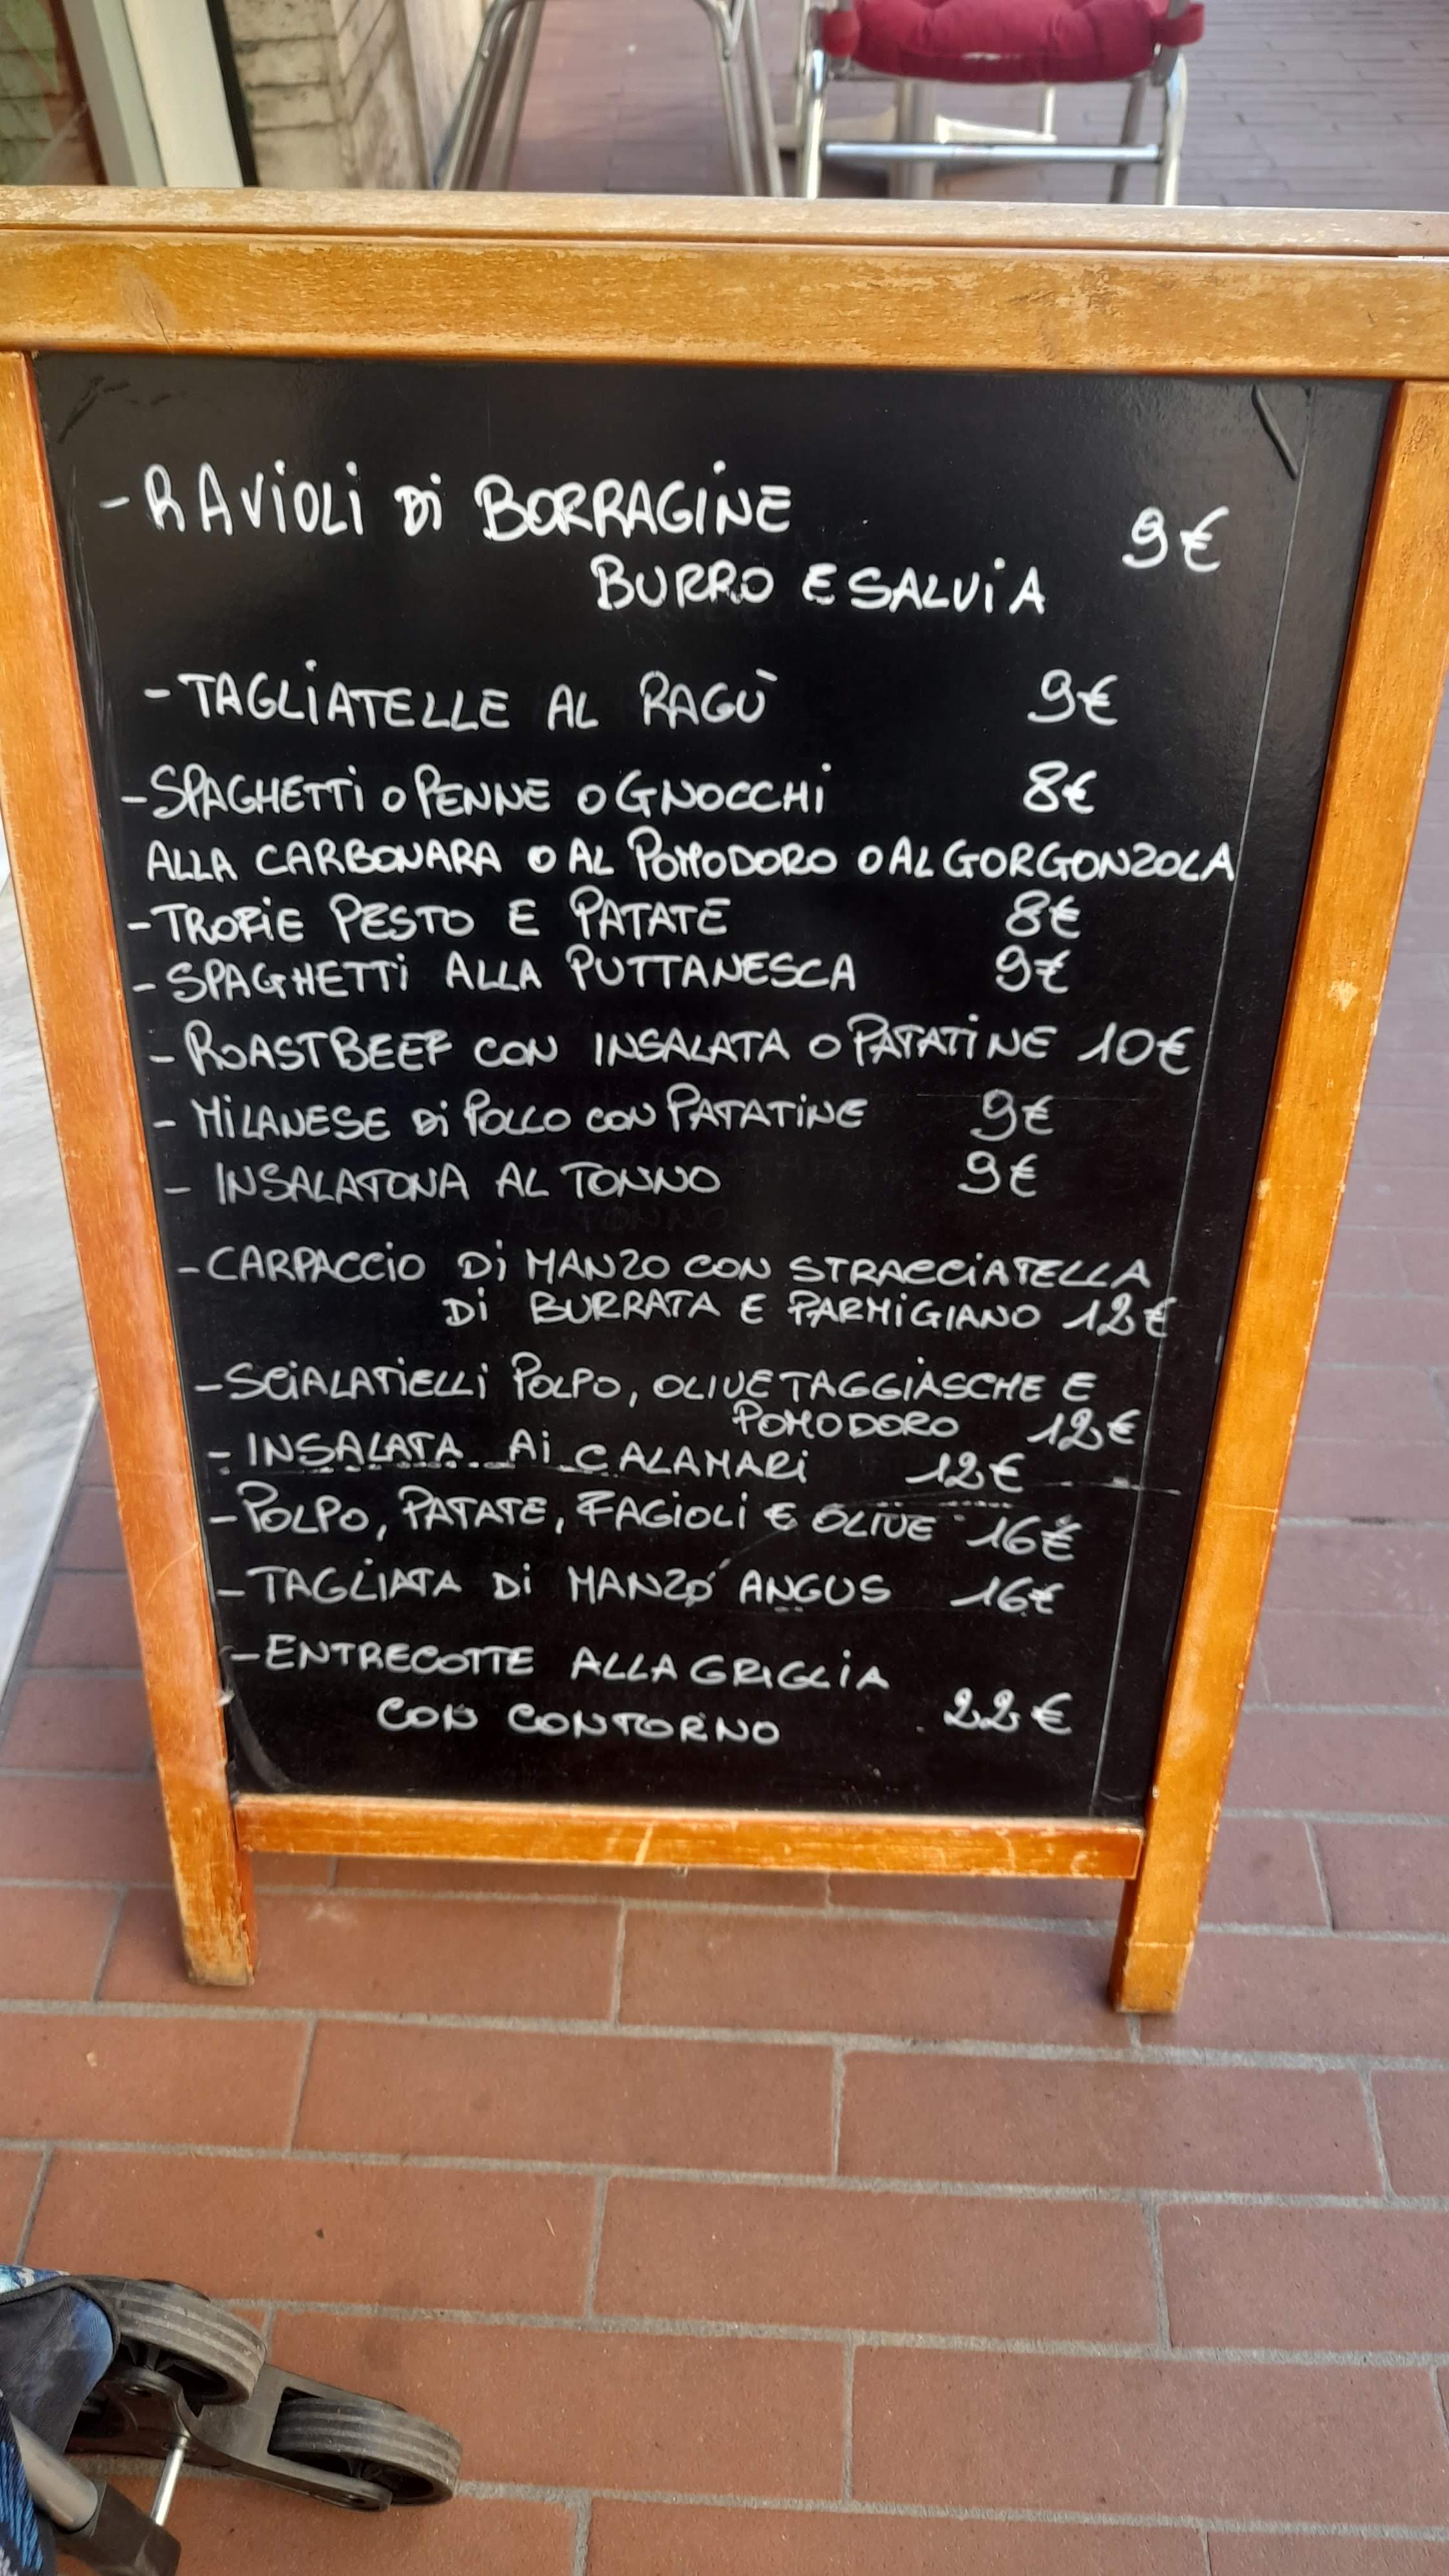 - RAVIOLI DI BORRAGINE 9€
BURRO E SALVIA
- TAGLIATELLE AL RAGÙ 9€
- SPAGHETTI O PENNE O GNOCCHI 8€
ALLA CARBONARA O AL POMODORO O AL GORGONZOLA
- TROFIE PESTO E PATATE 8€
- SPAGHETTI ALLA PUTTANESCA 9€
- ROASTBEEF CON INSALATA O PATATINE 10€
- MILANESE DI POLLO CON PATATINE 9€
- INSALATONA AL TONNO 9€
- CARPACCIO DI MANZO CON STRACCIATELLA
DI BURRATA E PARMIGIANO 12€
- SCIALATIELLI POLPO, OLIVE TAGGIASCHE E
POMODORO 12€
- INSALATA AI CALAMARI 12€
- POLPO, PATATE, FAGIOLI E OLIVE 16€
- TAGLIATA DI MANZO ANGUS 16€
- ENTRECOTTE ALLA GRIGLIA
CON CONTORNO 22€